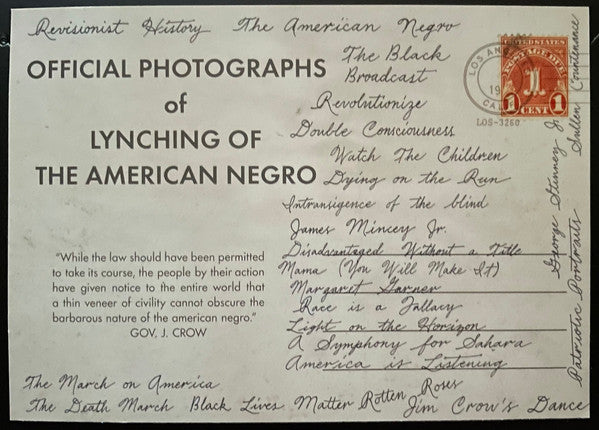 Revisionist History The American Negro
OFFICIAL PHOTOGRAPHS
of
LYNCHING OF
THE AMERICAN NEGRO
The Black
Broadcast
Revolutionize
Double Consciousness
Watch The Children
Dying on the Run
Intransigence of the blind
James Mincey Jr.
Disadvantaged Without a Title
Mama (You Will Make It)
Margaret Garner
Race is a Fallacy
Light on the Horizon
A Symphony for Sahara
America is Listening
"While the law should have been permitted
to take its course, the people by their action
have given notice to the entire world that
a thin veneer of civility cannot obscure the
barbarous nature of the american negro."
GOV. J. CROW
The March on America
The Death March Black Lives Matter Rotten Roses Jim Crow's Dance
Patriotic Portraits Sullen Countenance
George Stinney Jr
LOS
19
CAL
LOS-3260
UNITED STATES
POSTAGE DUE
1 1
CENT